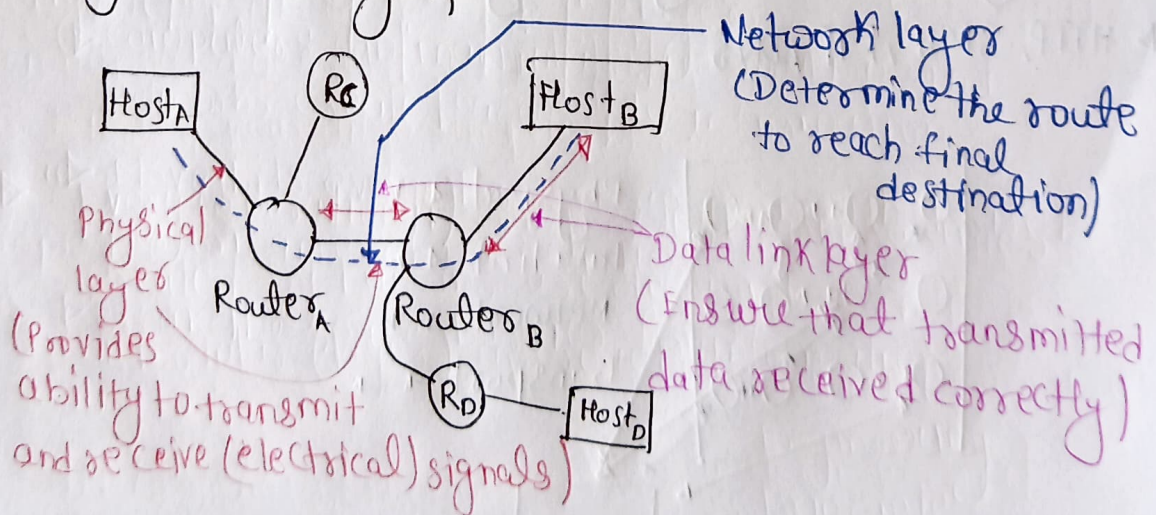 Network layer
(Determine the route
to reach final
destination)
Host A
RC
Host B
Physical
layer
(Provides
ability to transmit
and receive (electrical) signals)
Router A
Router B
Data link layer
(Ensure that transmitted
data received correctly)
RD
Host D